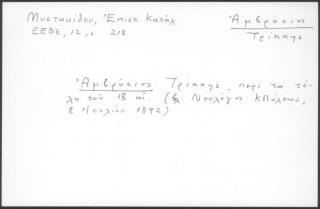 Μυστακίδου, Ἐπισκ. Κατάλ.
ΕΕΒΣ, 12, σ. 218
Ἀμβρόσιος
Τρίκκης
Ἀμβρόσιος Τρίκκης, περὶ τὰ τέ-
λη τοῦ 18 αἰ. (βλ. Νεολόγος ΚΠόλεως,
8 Ἰουλίου 1892)